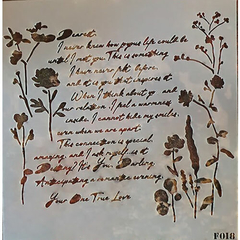 Dearest
I never knew how joyous life could be
until I met you. This is something
I have never felt before
and it is you that inspires it
When I think about you and
our relation, I feel a warmness
inside. I cannot hide my smiles,
even when we are apart.
This connection is special,
amazing, and I ask myself is it
Destiny? It's Your Darling
Anticipating a romantic evening.
Your One True Love
F018